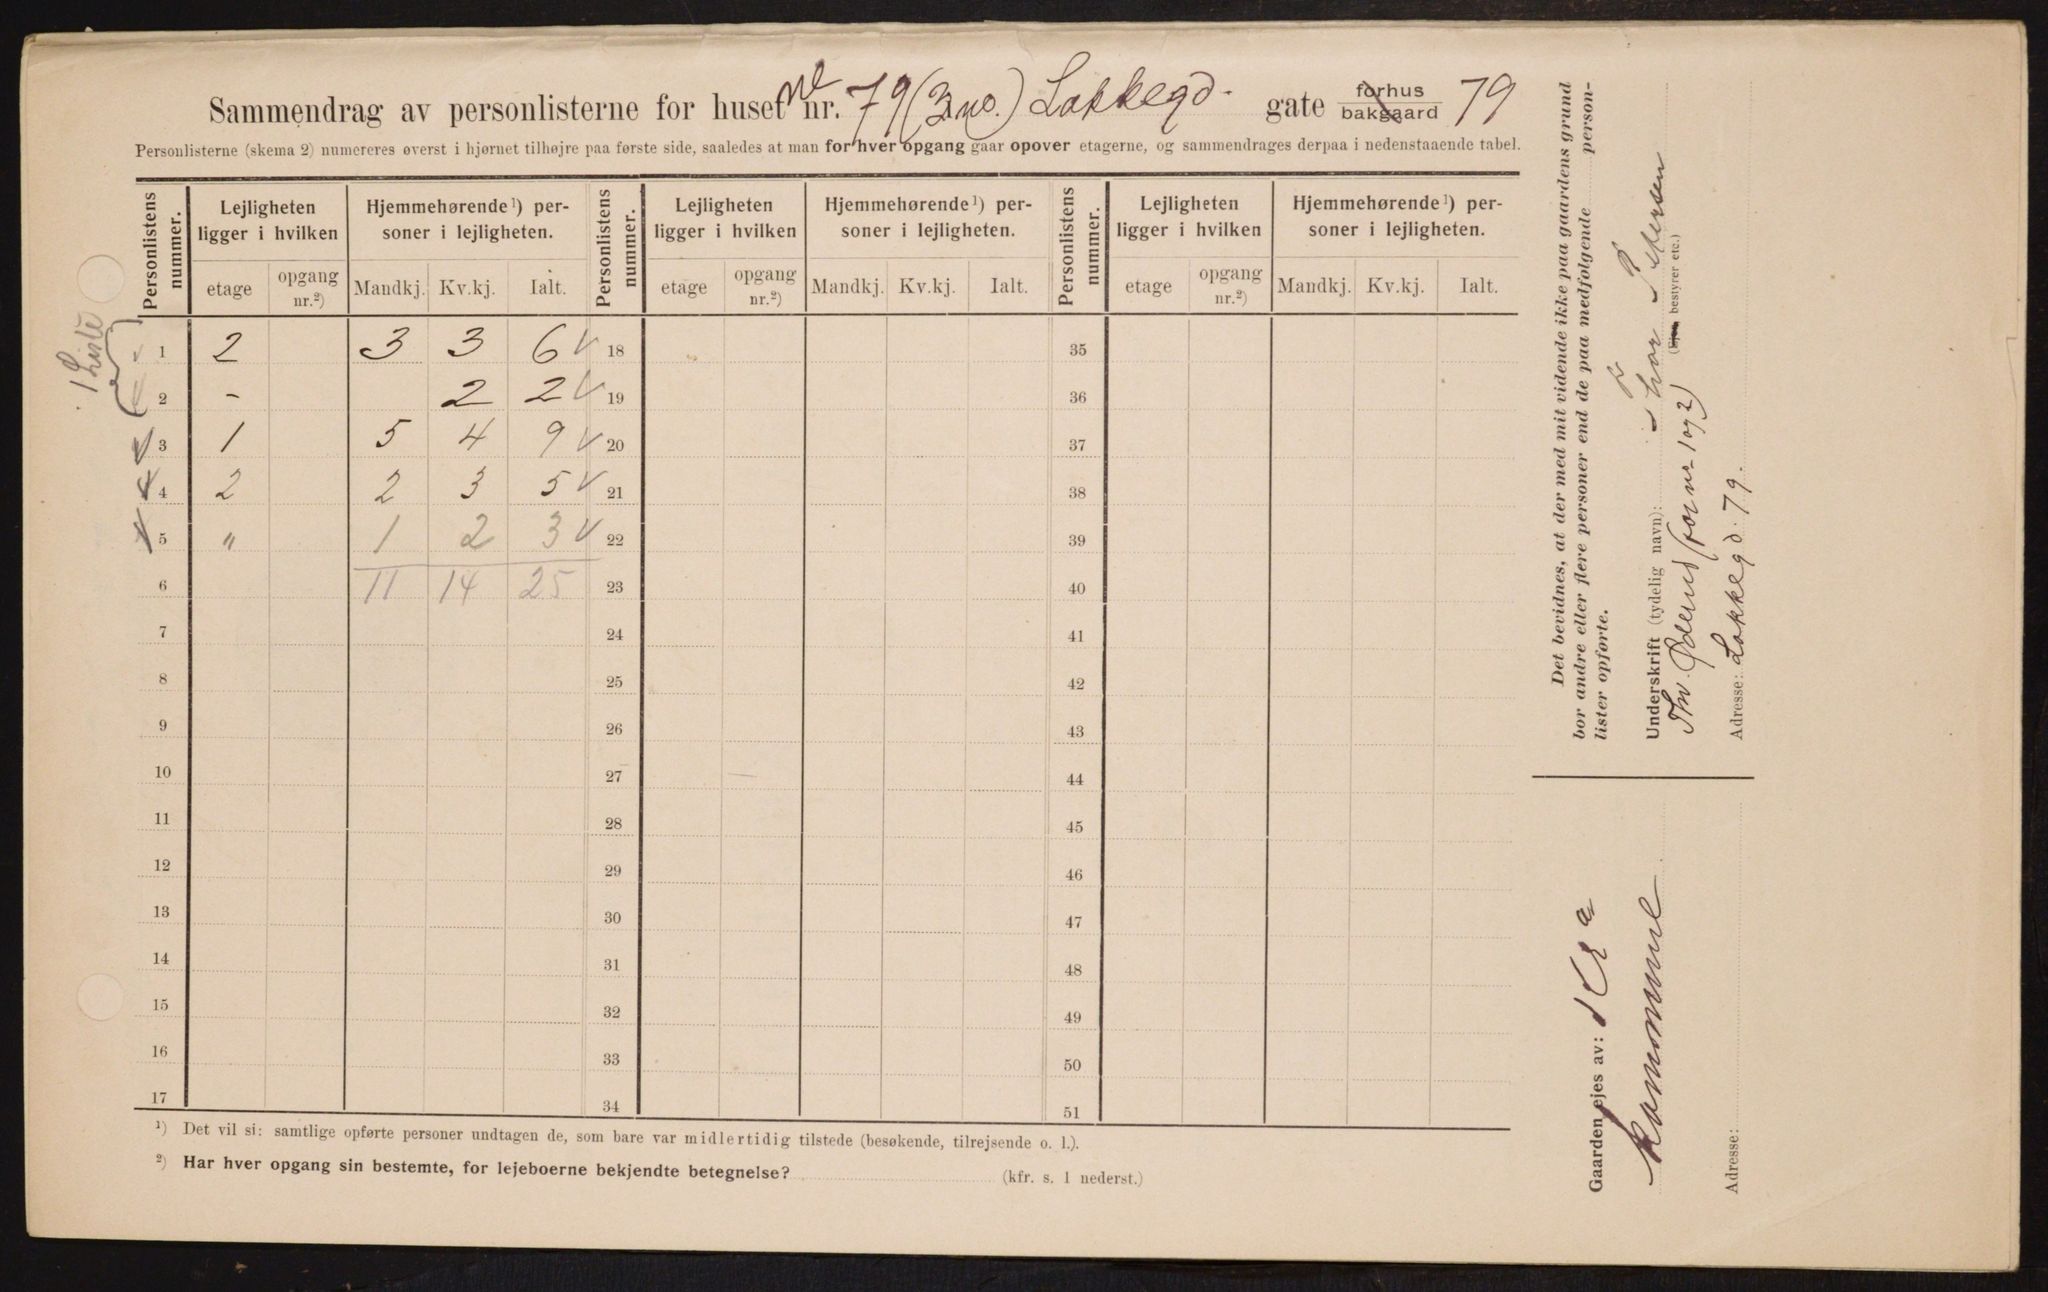 Sammendrag av personlisterne for huset nr. 79 (3 no.) Løkkegd. gate forhus bakgaard 79
Personlisterne (skema 2) numereres øverst i hjørnet tilhøjre paa første side, saaledes at man for hver opgang gaar opover etagerne, og sammendrages derpaa i nedenstaaende tabel.
Personlistens nummer. Lejligheten ligger i hvilken Hjemmehørende¹) personer i lejligheten. Personlistens nummer. Lejligheten ligger i hvilken Hjemmehørende¹) personer i lejligheten. Personlistens nummer. Lejligheten ligger i hvilken Hjemmehørende¹) personer i lejligheten.
etage opgang nr.²) Mandkj. Kv.kj. Ialt. etage opgang nr.²) Mandkj. Kv.kj. Ialt. etage opgang nr.²) Mandkj. Kv.kj. Ialt.
1 Liste
1 2 3 3 6 18 35
2 - 2 2 19 36
3 1 5 4 9 20 37
4 2 2 3 5 21 38
5 " 1 2 3 22 39
6 11 14 25 23 40
7 24 41
8 25 42
9 26 43
10 27 44
11 28 45
12 29 46
13 30 47
14 31 48
15 32 49
16 33 50
17 34 51
¹) Det vil si: samtlige opførte personer undtagen de, som bare var midlertidig tilstede (besøkende, tilrejsende o. l.).
²) Har hver opgang sin bestemte, for lejeboerne bekjendte betegnelse? (kfr. s. 1 nederst.)
Det bevidnes, at der med mit vidende ikke paa gaardens grund
bor andre eller flere personer end de paa medfølgende personlister opførte.
Underskrift (tydelig navn): Thor Petersen
(Ejer, bestyrer etc.)
Thv. (for nr 1 og 2)
Adresse: Løkkegd. 79.
Gaarden ejes av: Kra
kommune
Adresse: